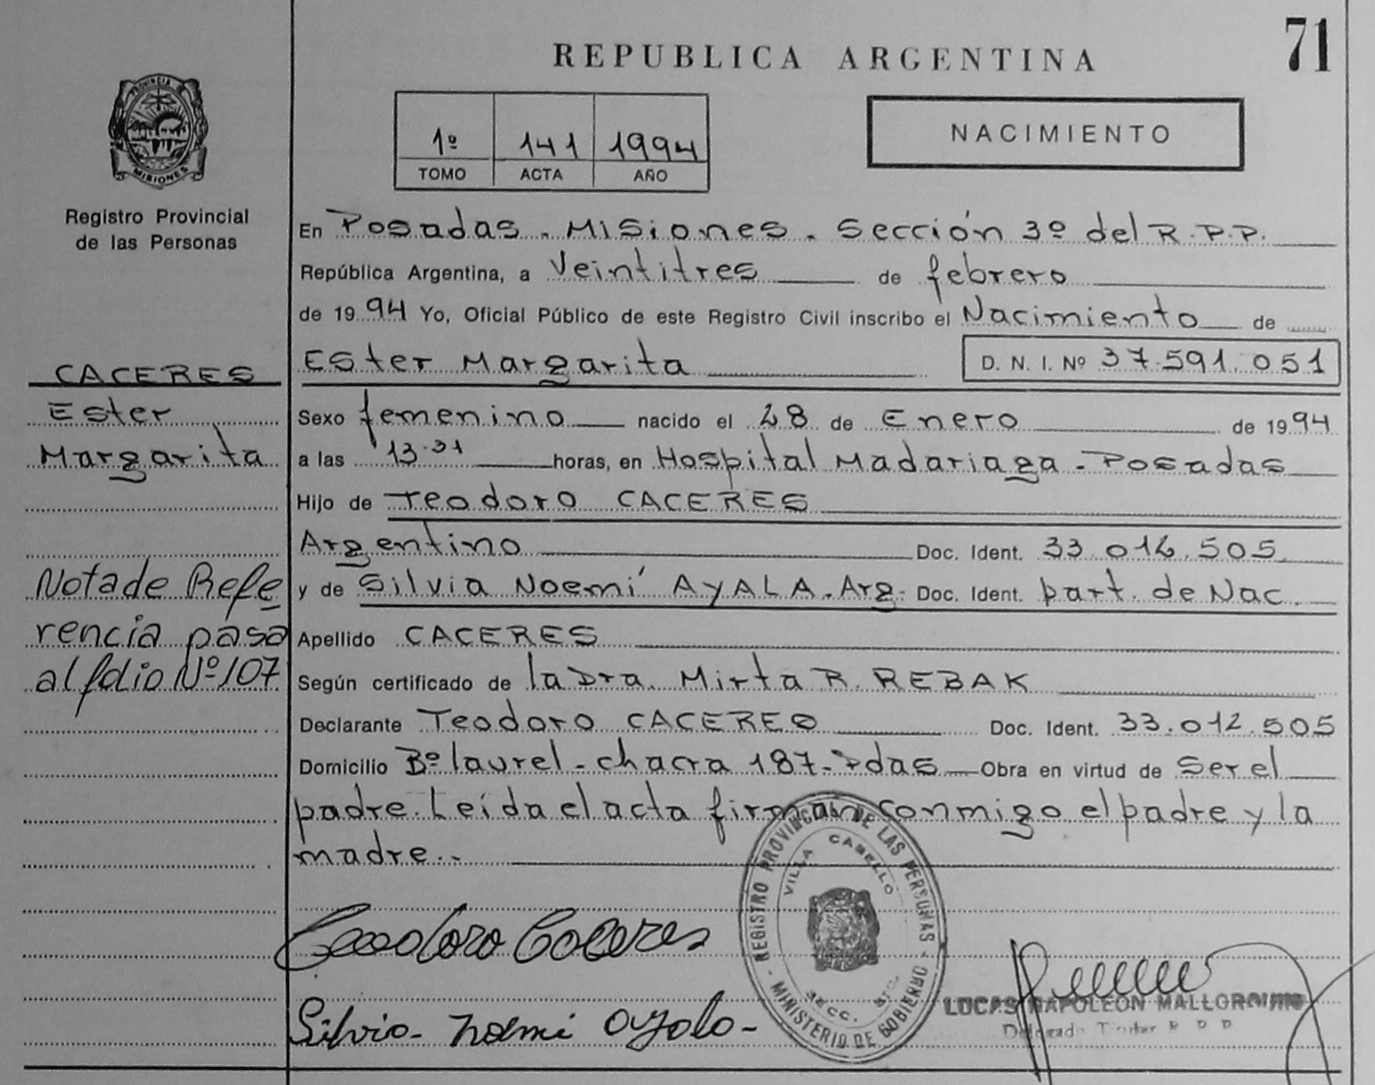 71
REPUBLICA ARGENTINA
PROVINCIA DE
MISIONES
1º 141 1994
TOMO ACTA AÑO
NACIMIENTO
Registro Provincial
de las Personas
En Posadas - Misiones - Sección 3º del R.P.P.
República Argentina, a Veintitres de febrero
de 1994 Yo, Oficial Público de este Registro Civil inscribo el Nacimiento de
Ester Margarita D. N. I. Nº 37.591.051
CACERES
Ester
Margarita
Sexo femenino nacido el 28 de Enero de 1994
a las 13.31 horas, en Hospital Madariaga - Posadas
Hijo de Teodoro CACERES
Argentino Doc. Ident. 33.012.505
y de Silvia Noemí AYALA. Arg. Doc. Ident. part. de Nac.
Nota de Refe
rencia pasa
al folio Nº 107
Apellido CACERES
Según certificado de la Dra. Mirta R. REBAK
Declarante Teodoro CACERES Doc. Ident. 33.012.505
Domicilio Bº laurel - chacra 187 - Pdas Obra en virtud de Ser el
padre. Leída el acta firman conmigo el padre y la
madre.-
REGISTRO PROVINCIAL DE LAS PERSONAS
VILLA CABELLO
SECC.
- MINISTERIO DE GOBIERNO -
Teodoro Caceres
Silvia - Noemi Ayala -
LUCAS NAPOLEON
Delegado Titular R P P